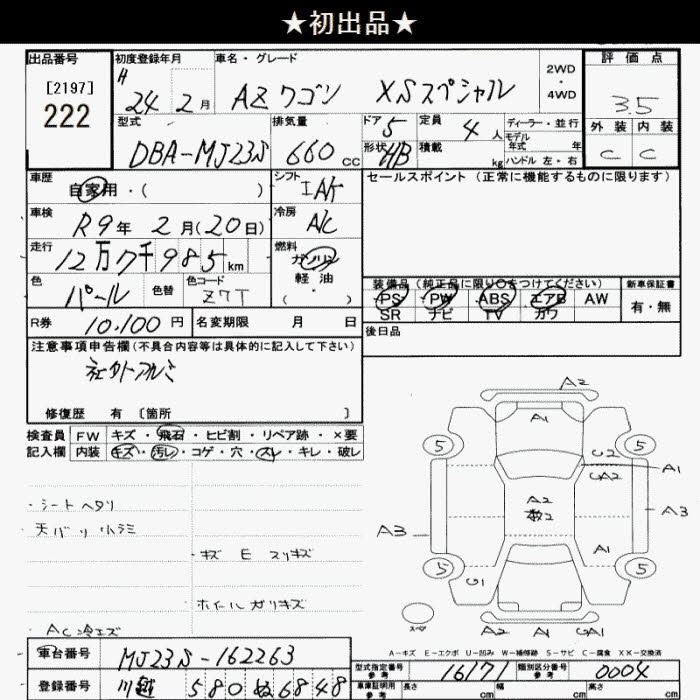 ★初出品★
出品番号
[2197]
222
初度登録年月
H
24年 2月
車名・グレード
AZワゴン XSスペシャル
2WD
・
4WD
評価点
3.5
外装 内装
C C
型式
DBA-MJ23S
排気量
660 cc
ドア 5
形状 HB
定員 4人
積載 kg
ディーラー・並行
モデル
年式 年
ハンドル 左・右
車歴
自家用・( )
シフト
IAT
車検
R9年 2月(20日)
冷房
A/C
走行
12万7千985km
燃料
ガソリン
軽油
( ・ )
色
パール
色替
色コード
Z7T
R券
10,100円
名変期限 月 日
セールスポイント(正常に機能するものに限ります)
装備品(純正品に限り○をつけてください)
PS PW ABS エアB AW
SR ナビ TV カワ
新車保証書
有・無
後日品
注意事項申告欄(不具合内容等は具体的に記入して下さい)
社外アルミ
修復歴 有 [箇所 ]
検査員
記入欄
FW キズ・飛石・ヒビ割・リペア跡・×要
内装 キズ・汚レ・コゲ・穴・スレ・キレ・破レ
・シートヘタリ
天バリ
・キズ E スリキズ
ホイールガリキズ
AC冷エズ
A2
A1
5
5
G2
GA2
A1
A2
A3
A3
A1
5
5
G1
A2 A1 GA1
スペア
A-キズ E-エクボ U-凹み W-補修跡 S-サビ C-腐食 XX-交換済
車台番号
MJ23S-162263
登録番号
川越 580 ぬ 6848
型式指定番号
参考
16171
類別区分番号
参考
0004
車庫証明用
参考
長さ cm
幅 cm
高さ cm